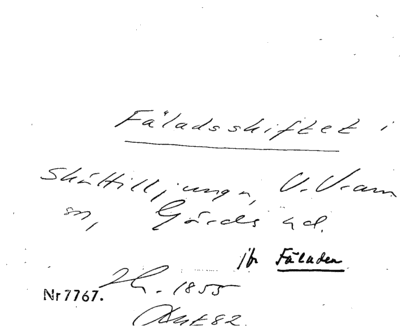 Fäladsskiftet i
Skättilljunga, V. Vram
sn, Gärds hd.
jfr Fäladen
Nr 7767. 1855
Akt 82.